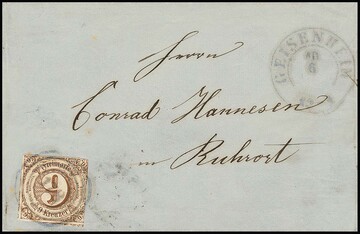 GEISENHEIM
Herrn
Conrad Hannesen
in Ruhrort
9
Kreuzer